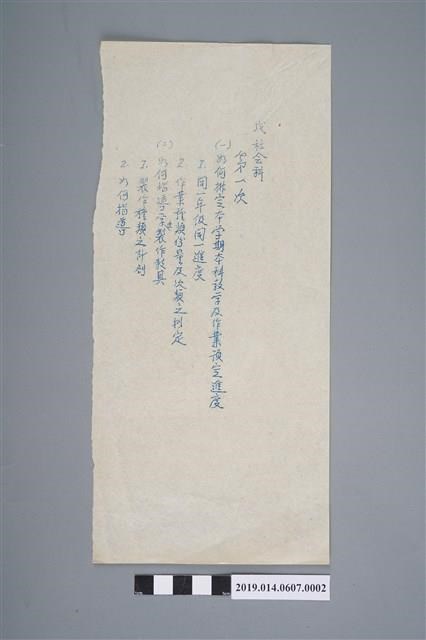 戊 社会科
第一次
(一) 如何排定本学期本科教学及作業預定進度
1. 同一年级同一進度
2. 作業種類份量及次数之判定
(二) 如何指導学生製作教具
1. 製作種類之計划
2. 如何指導
2019.014.0607.0002